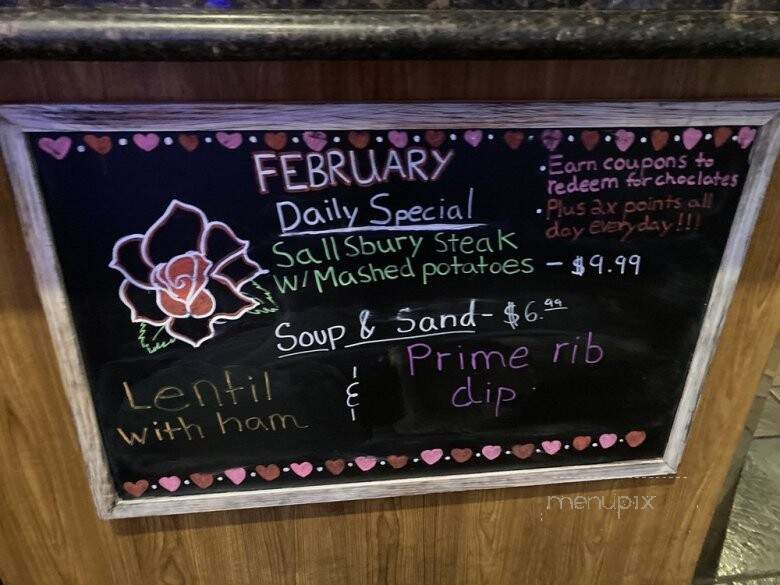 FEBRUARY
Daily Special
Sallsbury Steak
W/Mashed potatoes - $9.99
• Earn coupons to
redeem for choclates
• Plus 2x points all
day everyday!!!
Soup & Sand - $6.99
Lentil
with ham
&
Prime rib
dip
menupix